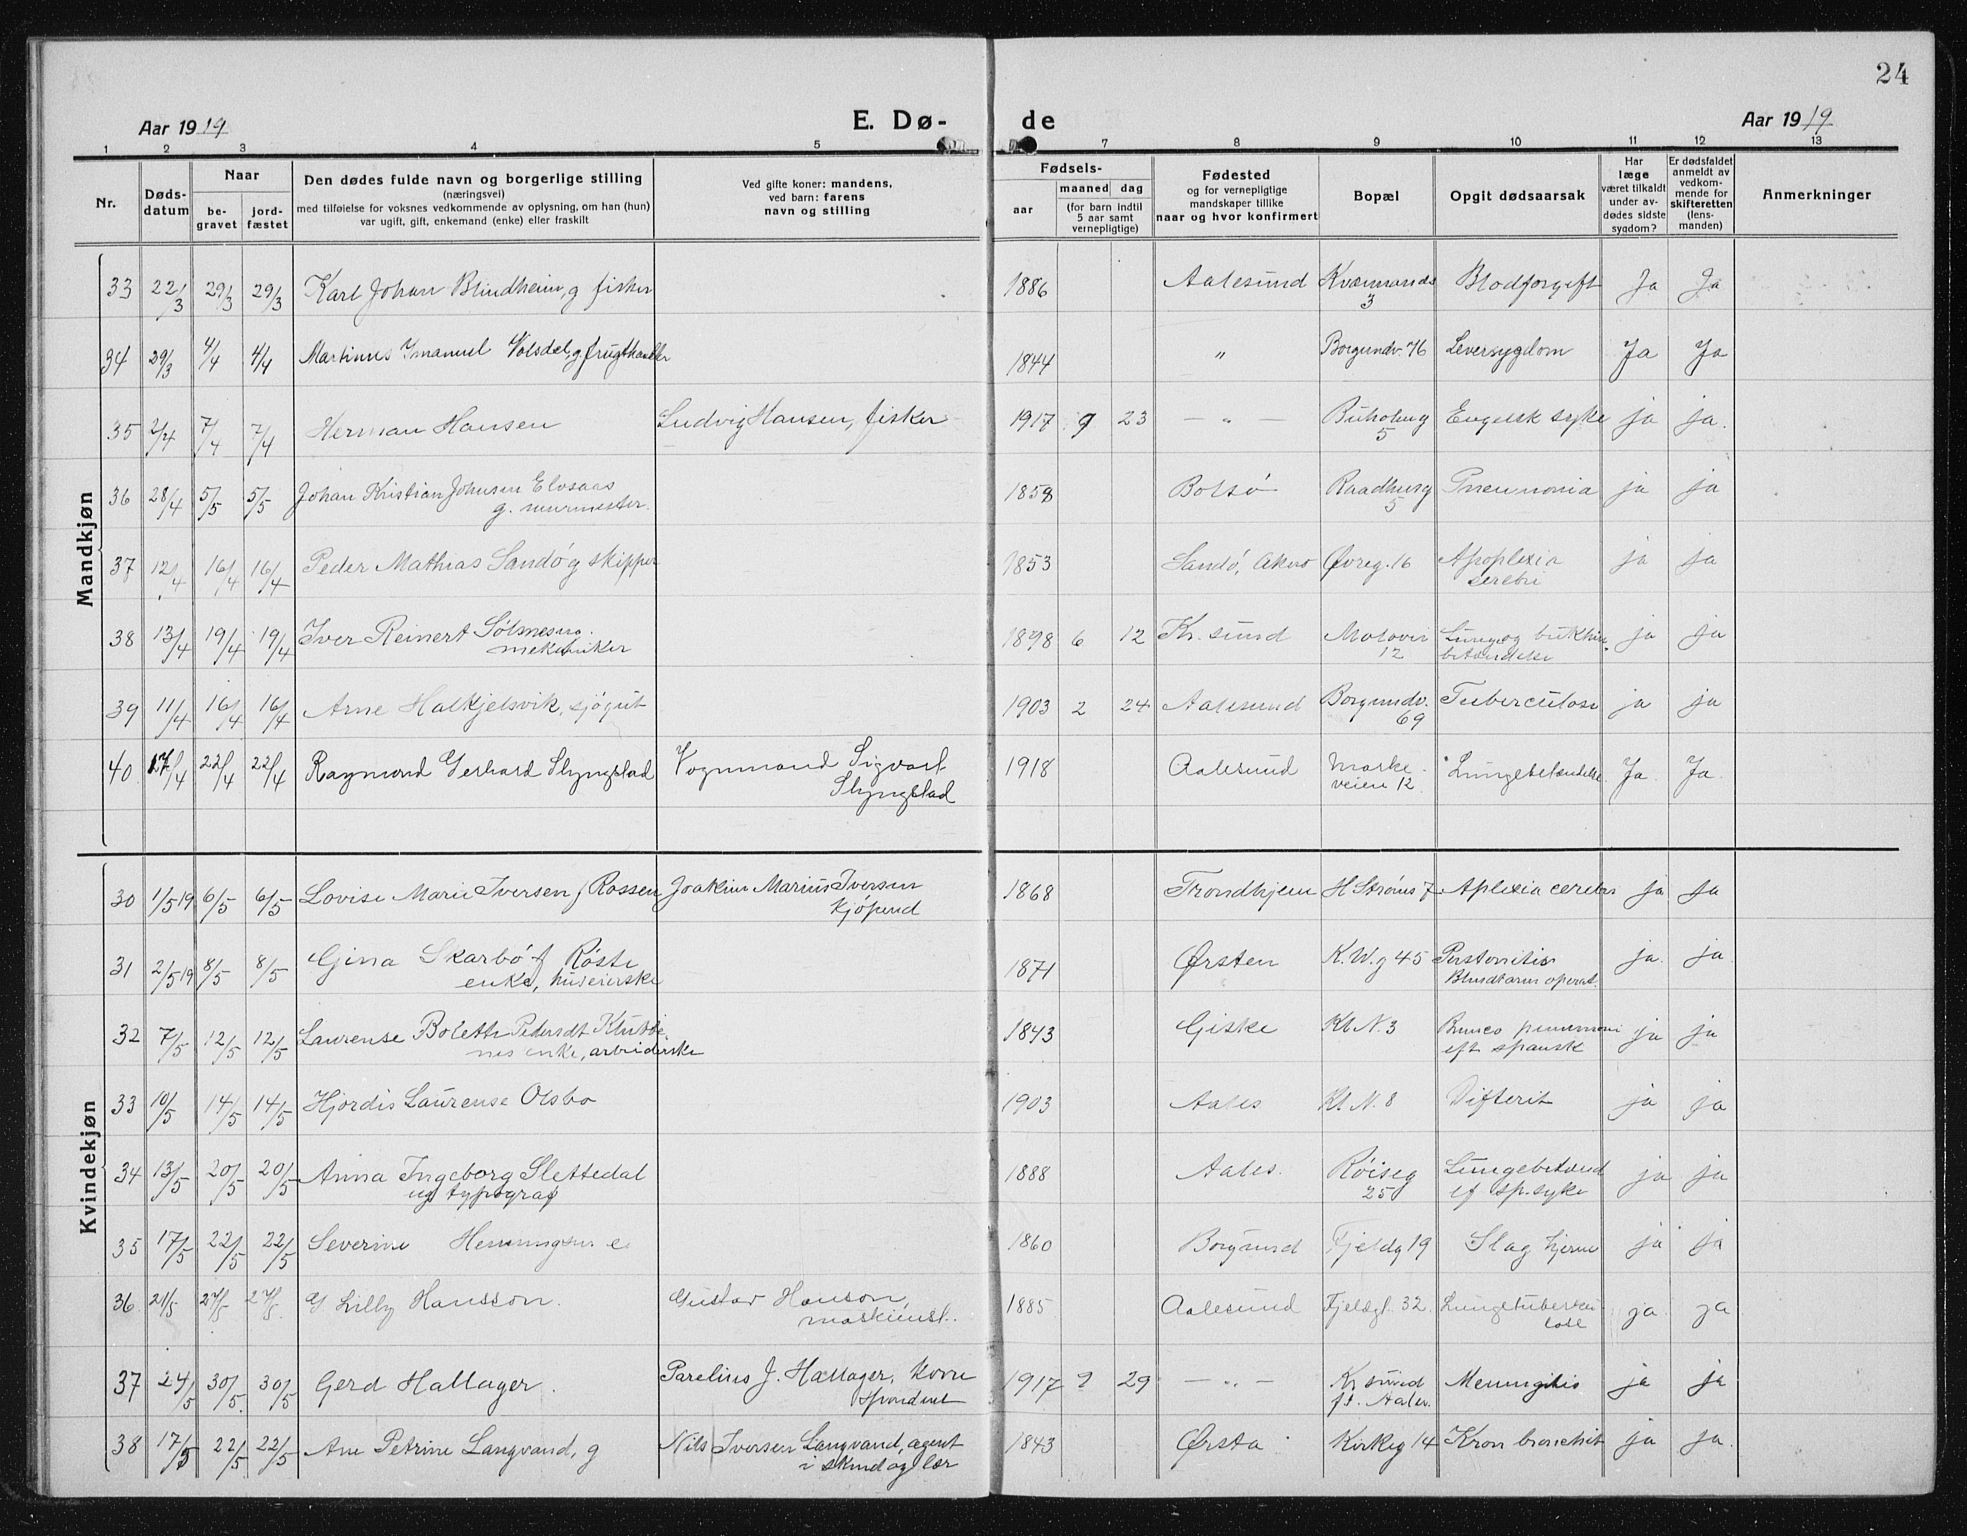 24
Aar 1919
E. Dø-
de
Aar 1919
1 2 3 4 5 7 8 9 10 11 12 13
Nr.
Døds-
datum
Naar
be-
gravet
jord-
fæstet
Den dødes fulde navn og borgerlige stilling
(næringsvei)
med tilføielse for voksnes vedkommende av oplysning, om han (hun)
var ugift, gift, enkemand (enke) eller fraskilt
Ved gifte koner: mandens,
ved barn: farens
navn og stilling
Fødsels-
aar
maaned dag
(for barn indtil
5 aar samt
vernepligtige)
Fødested
og for vernepligtige
mandskaper tillike
naar og hvor konfirmert
Bopæl
Opgit dødsaarsak
Har
læge
været tilkaldt
under av-
dødes sidste
sygdom?
Er dødsfaldet
anmeldt av
vedkom-
mende for
skifteretten
(lens-
manden)
Anmerkninger
Mandkjøn
33 22/3 29/3 29/3 Karl Johan Blindheim, g fisker 1886 Aalesund Kvennands Blodforgift Ja Ja
3
34 29/3 4/4 4/4 Martinus Imanuel Volsdal, g frugthandler 1844 " Borgundv. 76 Leversygdom Ja Ja
35 2/4 7/4 7/4 Herman Hansen Ludvig Hansen, fisker 1917 9 23 — " — Buholmg Engelsk syke ja ja.
5
36 28/4 5/5 5/5 Johan Kristian Johnsen Elvsaas 1858 Bolsø Raadhusg Pneumonia ja ja
g. murmester. 5
37 12/4 16/4 16/4 Peder Mathias Sandø g skipper 1853 Sandø, Akerø Øvreg. 16 Apoplexia ja ja
serebri
38 13/4 19/4 19/4 Iver Reinert Sølmesng. 1898 6 12 Kr. sund Molovei Lunge og bukhin- ja ja
mekaniker 12 betændelse
39 11/4 16/4 16/4 Arne Halkjelsvik, sjøgut 1903 2 24 Aalesund Borgundv. Tuberculose ja ja
69
40 17/4 22/4 22/4 Raymond Gerhard Slyngstad Vognmand Sigvart 1918 Aalesund Marke- Lungebetændelse Ja. Ja.
Slyngstad veien 12
Kvindekjøn
30 1/5 19 6/5 6/5 Lovise Marie Iversen f Rossen Joakim Marius Iversen 1868 Trondhjem H Strøms 7 Aplexia cerebri ja ja
kjøpmd
31 2/5 19 8/5 8/5 Gina Skarbø f Røste 1871 Ørsten K. W. g 45 Peritonitis ja. ja.
enke, huseierske Blindtarms operat.
32 7/5 12/5 12/5 Laurense Bolette Pedersdt Klubbe- 1843 Giske Kl N. 3 Bronco pneumoni ja ja
nes enke, arbeiderske eft spansk
33 10/5 14/5 14/5 Hjordis Laurense Olsbo 1903 Aales Kl N. 8 Difterit ja ja
34 13/5 20/5 20/5 Anna Ingeborg Slettedal 1888 Aales. Røiseg Lungebetænd ja ja
ug typograf 25 ef sp. syke
35 17/5 22/5 22/5 Severine Henningsen e 1860 Borgund Fjeldg 19 Slag hjerne ja ja
36 21/5 27/5 27/5 g Lilly Hansson. Gustav Hanson, 1885 Aalesund Fjeldgt. 32. Lungetubercu- ja ja
maskinist. lose
37 24/5 30/5. 30/5 Gerd Hallager. Parelius J. Hallager, korre 1917 9 29 — " — Kr sund Meningitis ja ja
spondent ft. Aales.
38 17/5 22/5 22/5 Ane Petrine Langvand, g Nils Iversen Langvand, agent 1843 Ørsta Kirkeg 14 Kron bronchit ja ja.
i skind og lær